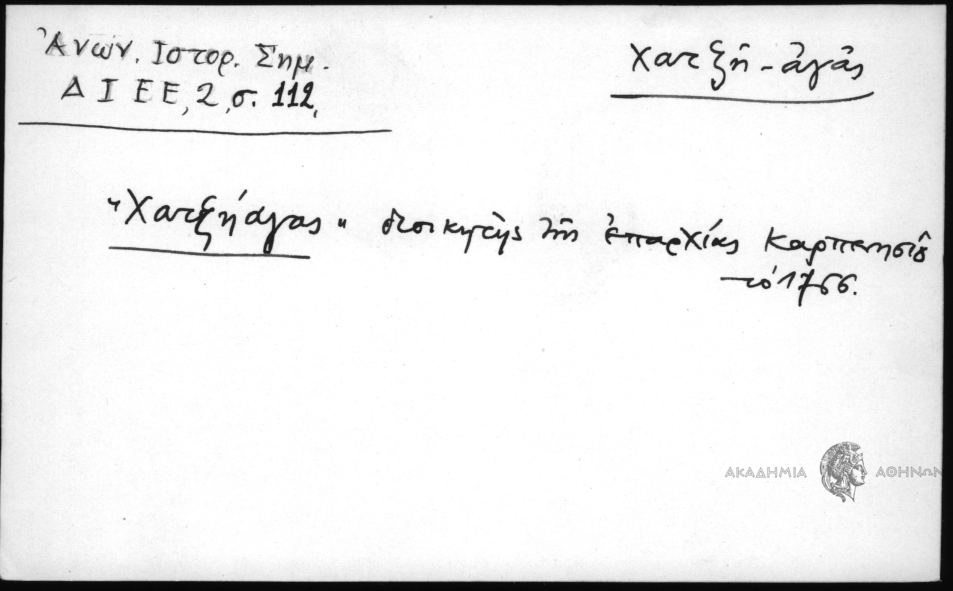 Ἀνών. Ιστορ. Σημ.
Δ Ι Ε Ε, 2, σ. 112,
Χατζῆ-ἀγᾶς
"Χατζήάγας" διοικητὴς τῆς ἐπαρχίας Καρπενησίȣ
τό 1766.
ΑΚΑΔΗΜΙΑ ΑΘΗΝΩΝ